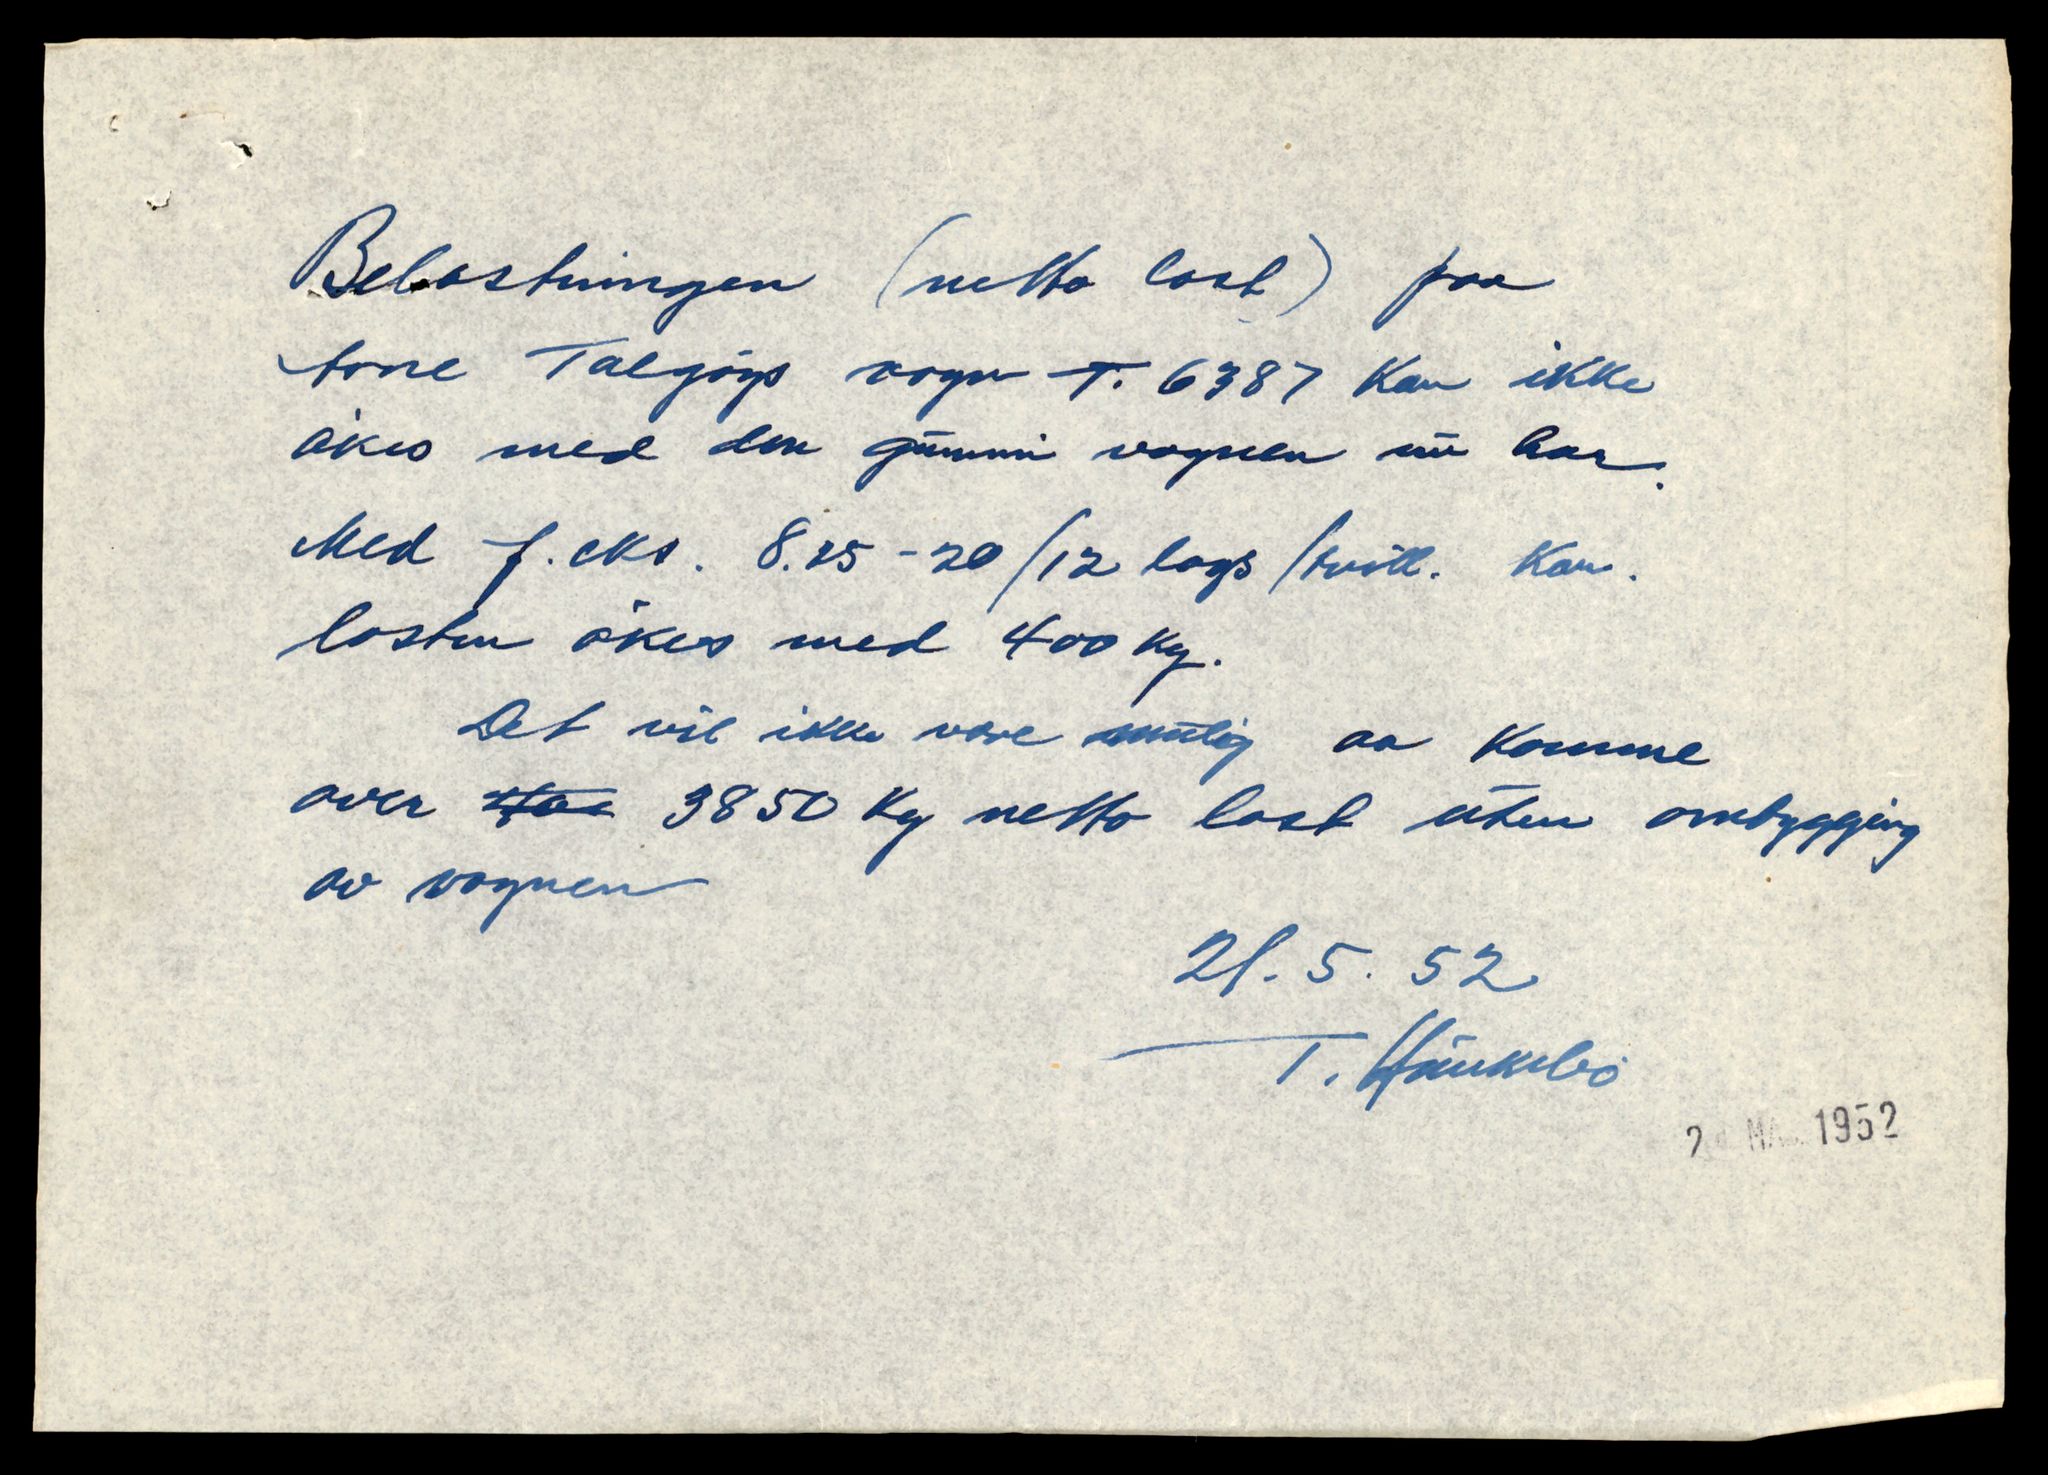 Belastningen (netto last) paa
Tore Talgøgs vogn T. 6387 kan ikke
økes med den gummi vognen nu har.
Med f. eks. 8.25-20/12 lags/tvill. kan.
lasten økes med 400 kg.
Det vil ikke være mulig aa komme
over 3850 kg netto last uten ombygging
av vognen
21.5.52
T.
1952